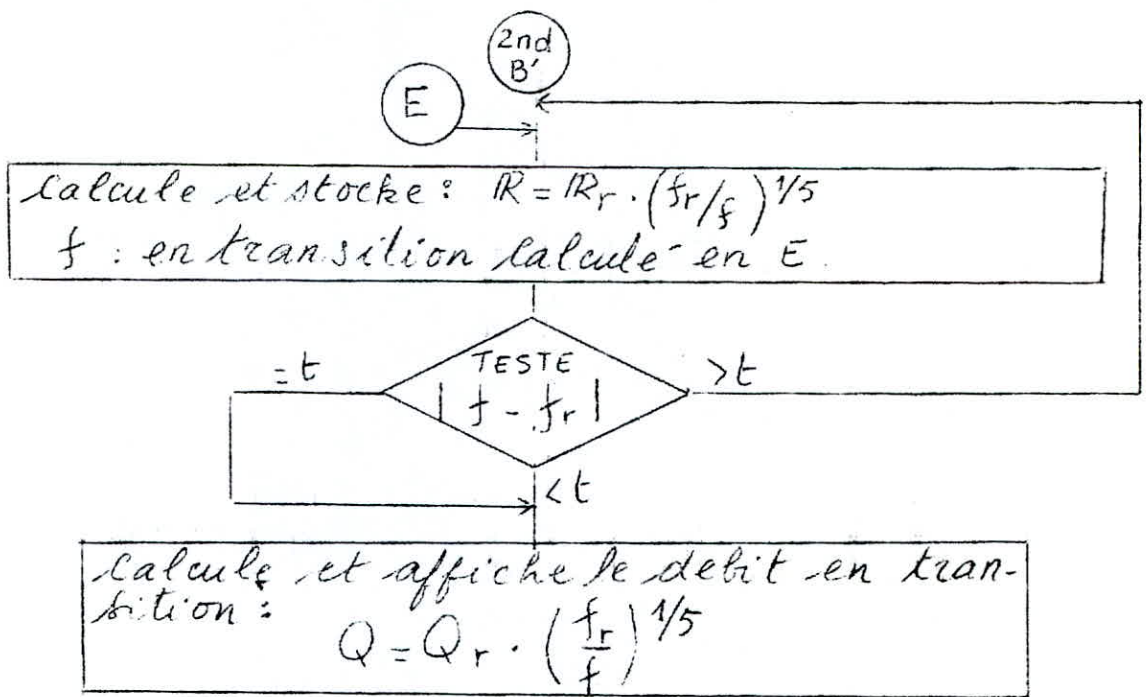 2nd
B'
E
Calcule et stocke : R = Rr . (fr/f)^1/5
f : en transition calculé en E.
= t
TESTE
| f - fr |
> t
< t
Calcule et affiche le debit en tran-
sition :
Q = Qr . (fr/f)^1/5